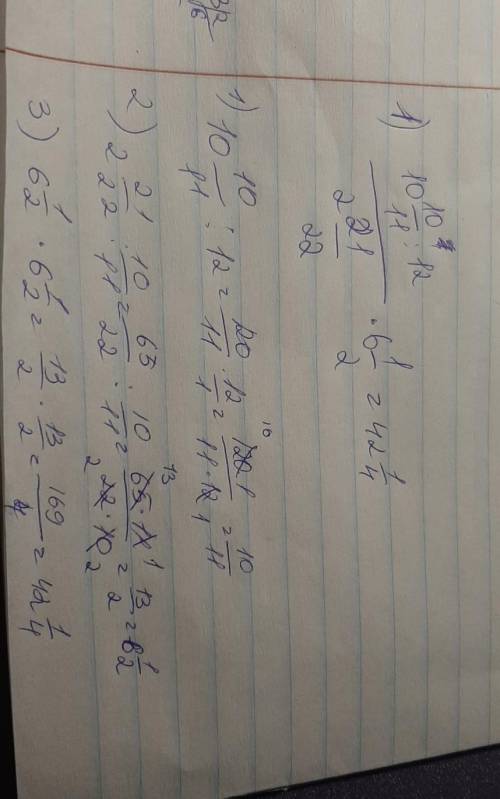 1) (10 10/11 : 12) / (2 21/22) · 6 1/2 = 42 1/4
1) 10 10/11 : 12 = 120/11 : 12/1 = 120 · 1/11 · 12 = 10/11
2) 2 21/22 : 10/11 = 65/22 : 10/11 = 65 · 11/22 · 10 = 13/2 = 6 1/2
3) 6 1/2 · 6 1/2 = 13/2 · 13/2 = 169/4 = 42 1/4